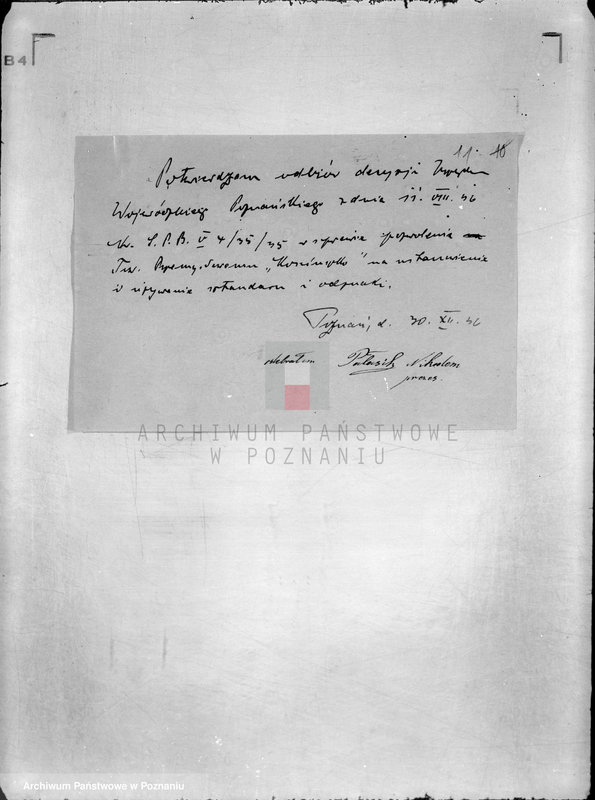 B4
11. 10
Potwierdzam odbiór decyzji Urzędu
Wojewódzkiego Poznańskiego z dnia 11. VIII. 36
Nr. S.P.B. V 4/35/35 w sprawie pozwolenia
Tow. "Kościuszko" na ustanowienie
i używanie sztandaru i odznaki.
Poznań, d. 30. XII. 36
odebrałem Nikodem
prezes.
ARCHIWUM PAŃSTWOWE
W POZNANIU
Archiwum Państwowe w Poznaniu